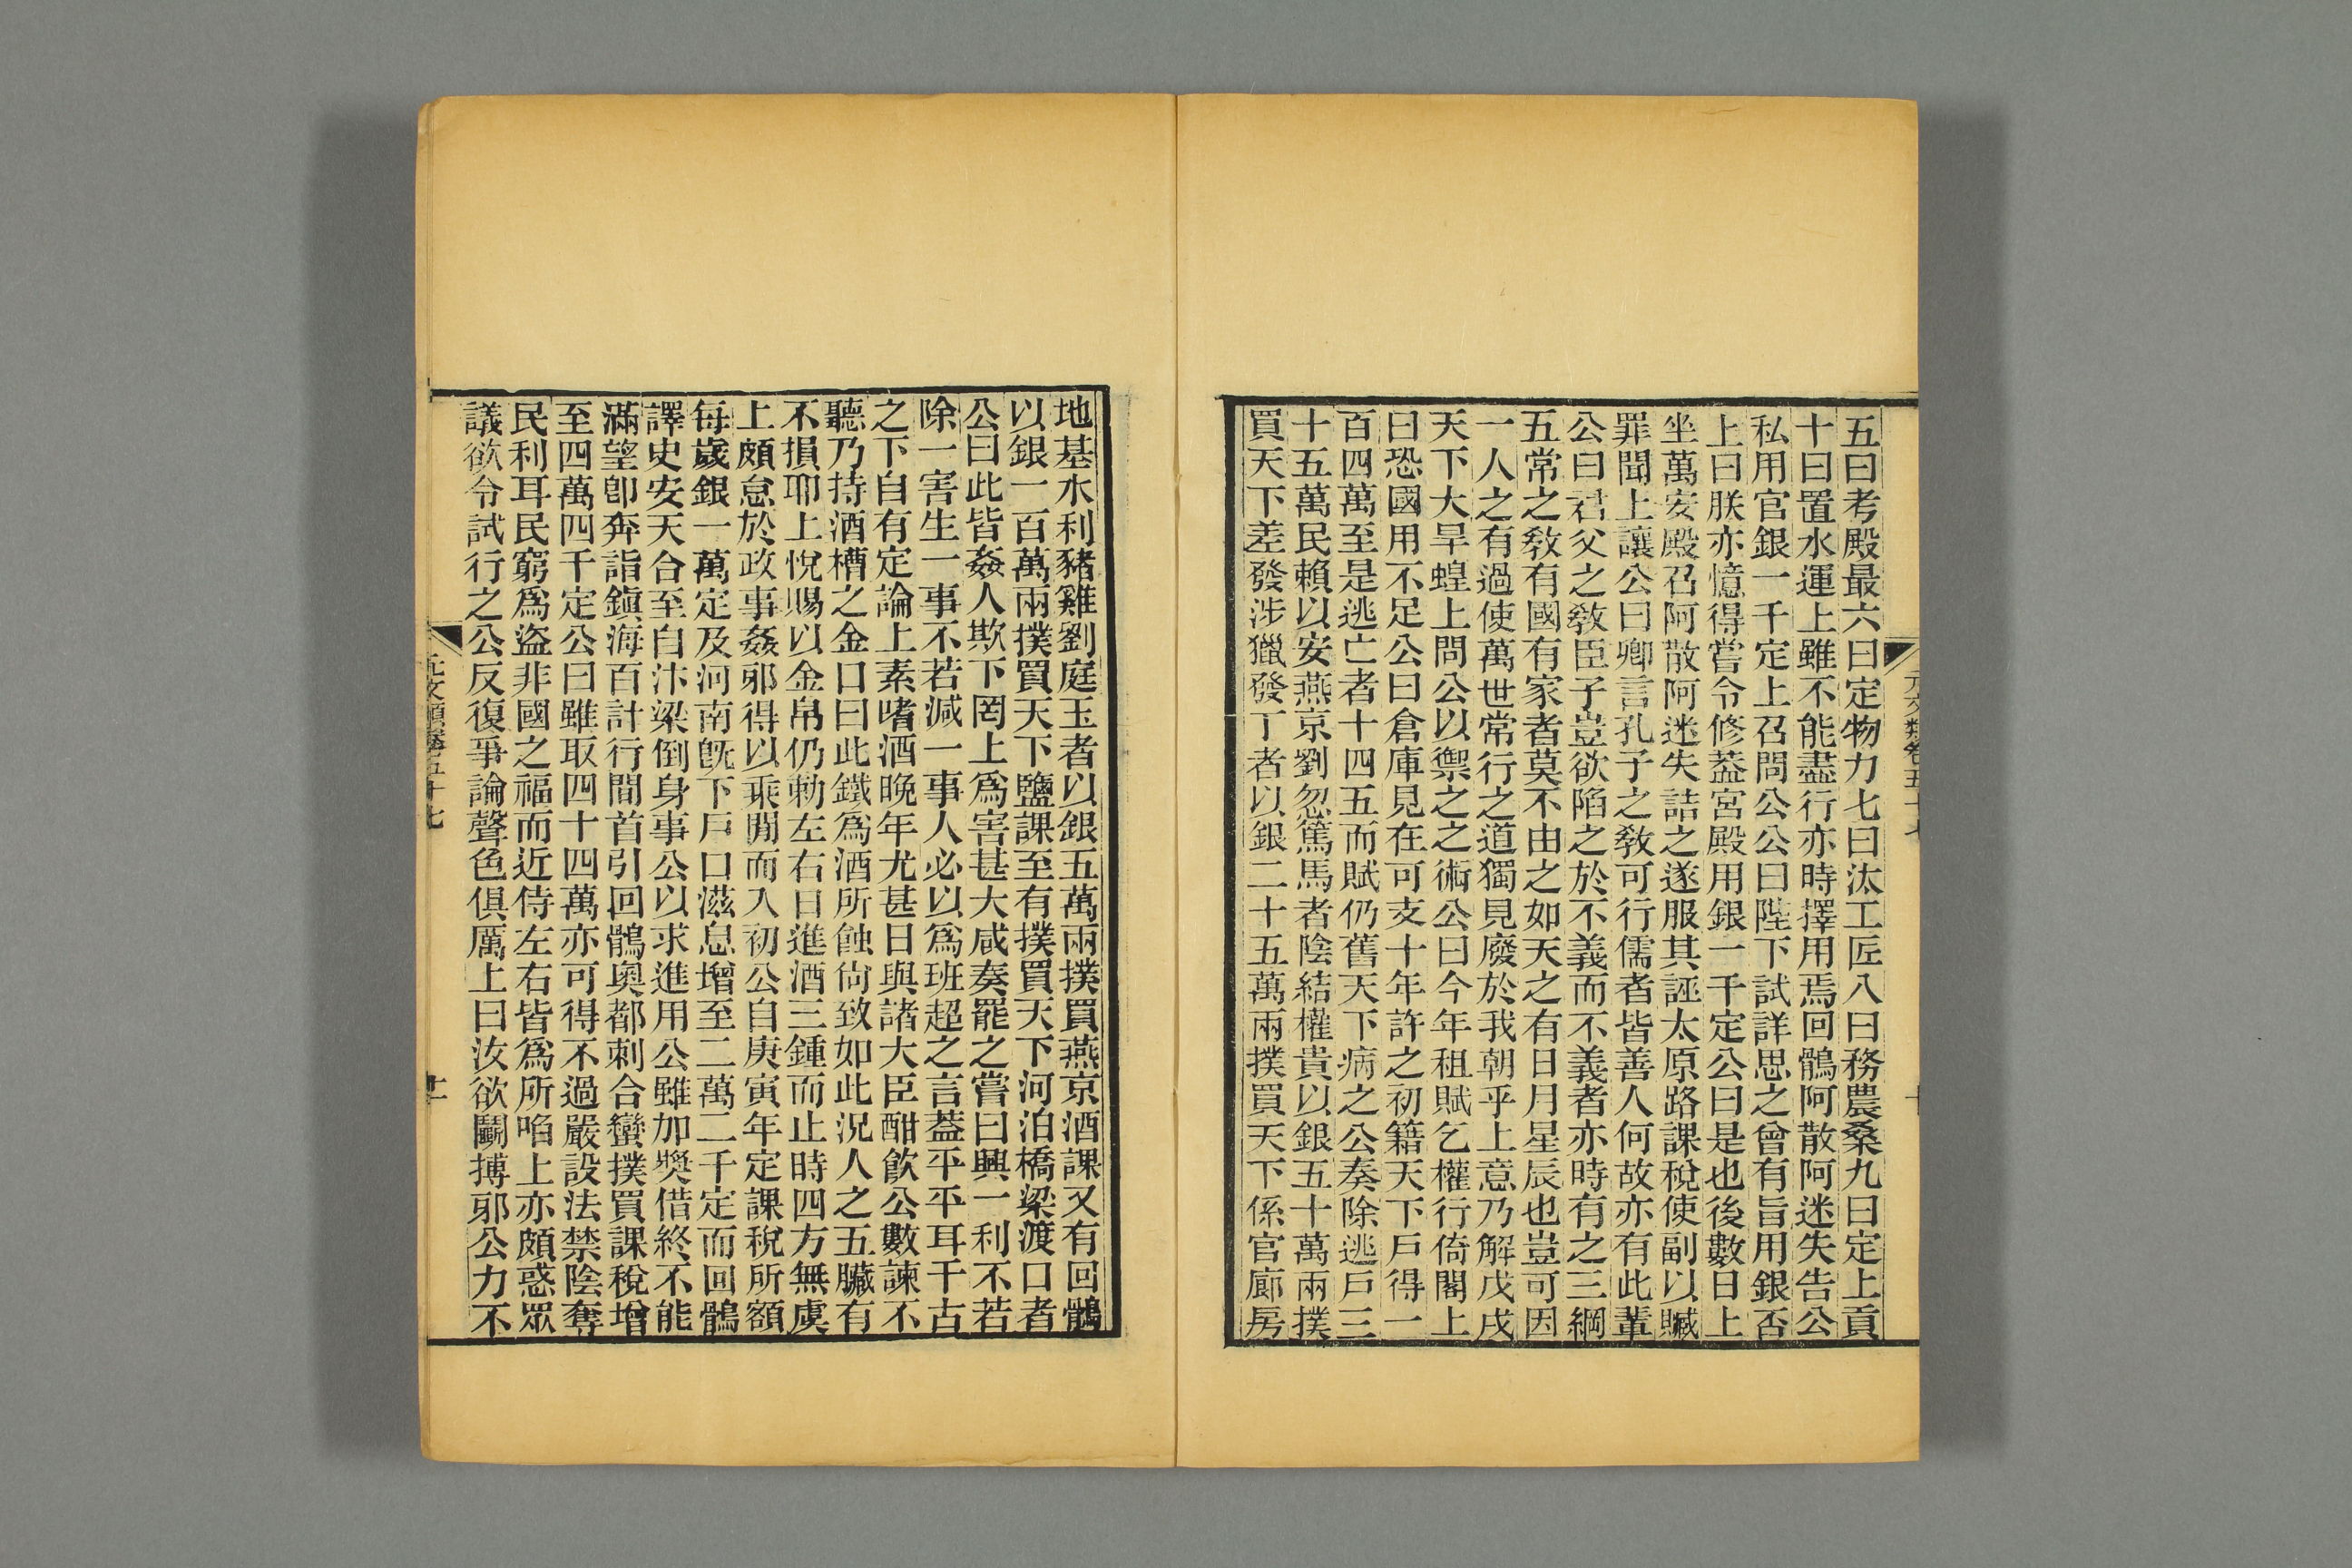 五曰考殿最六曰定物力七曰汰工匠八曰務農桑九曰定上貢
十曰置水運上雖不能盡行亦時擇用焉回鶻阿散阿迷失告公
私用官銀一千定上召問公公曰陛下試詳思之曾有旨用銀否
上曰朕亦憶得嘗令修蓋宮殿用銀一千定公曰是也後數日上
坐萬安殿召阿散阿迷失詰之遂服其誣太原路課稅使副以贓
罪聞上讓公曰卿言孔子之敎可行儒者皆善人何故亦有此輩
公曰君父之敎臣子豈欲陷之於不義而不義者亦時有之三綱
五常之敎有國有家者莫不由之如天之有日月星辰也豈可因
一人之有過使萬世常行之道獨見廢於我朝乎上意乃解戊戌
天下大旱蝗上問公以禦之之術公曰今年租賦乞權行倚閣上
曰恐國用不足公曰倉庫見在可支十年許之初籍天下戶得一
百四萬至是逃亡者十四五而賦仍舊天下病之公奏除逃戶三
十五萬民賴以安燕京劉忽篤馬者陰結權貴以銀五十萬兩撲
買天下差發涉獵發丁者以銀二十五萬兩撲買天下係官廊房
元文類卷五十七
十
地基水利豬雞劉庭玉者以銀五萬兩撲買燕京酒課又有回鶻
以銀一百萬兩撲買天下鹽課至有撲買天下河泊橋梁渡口者
公曰此皆姦人欺下罔上爲害甚大咸奏罷之嘗曰興一利不若
除一害生一事不若減一事人必以爲班超之言蓋平平耳千古
之下自有定論上素嗜酒晚年尤甚日與諸大臣酣飮公數諫不
聽乃持酒槽之金口曰此鐵爲酒所蝕尙致如此況人之五臟有
不損耶上悅賜以金帛仍勅左右日進酒三鍾而止時四方無虞
上頗怠於政事姦邪得以乘閒而入初公自庚寅年定課稅所額
每歲銀一萬定及河南旣下戶口滋息增至二萬二千定而回鶻
譯史安天合至自汴梁倒身事公以求進用公雖加奬借終不能
滿望卽奔詣鎭海百計行間首引回鶻奧都剌合蠻撲買課稅增
至四萬四千定公曰雖取四十四萬亦可得不過嚴設法禁陰奪
民利耳民窮爲盜非國之福而近侍左右皆爲所啗上亦頗惑眾
議欲令試行之公反復爭論聲色俱厲上曰汝欲鬭搏耶公力不
元文類卷五十七
十一